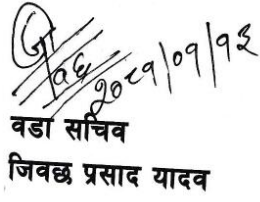 २०८१/०१/१३
वडा सचिव
जिवछ प्रसाद यादव